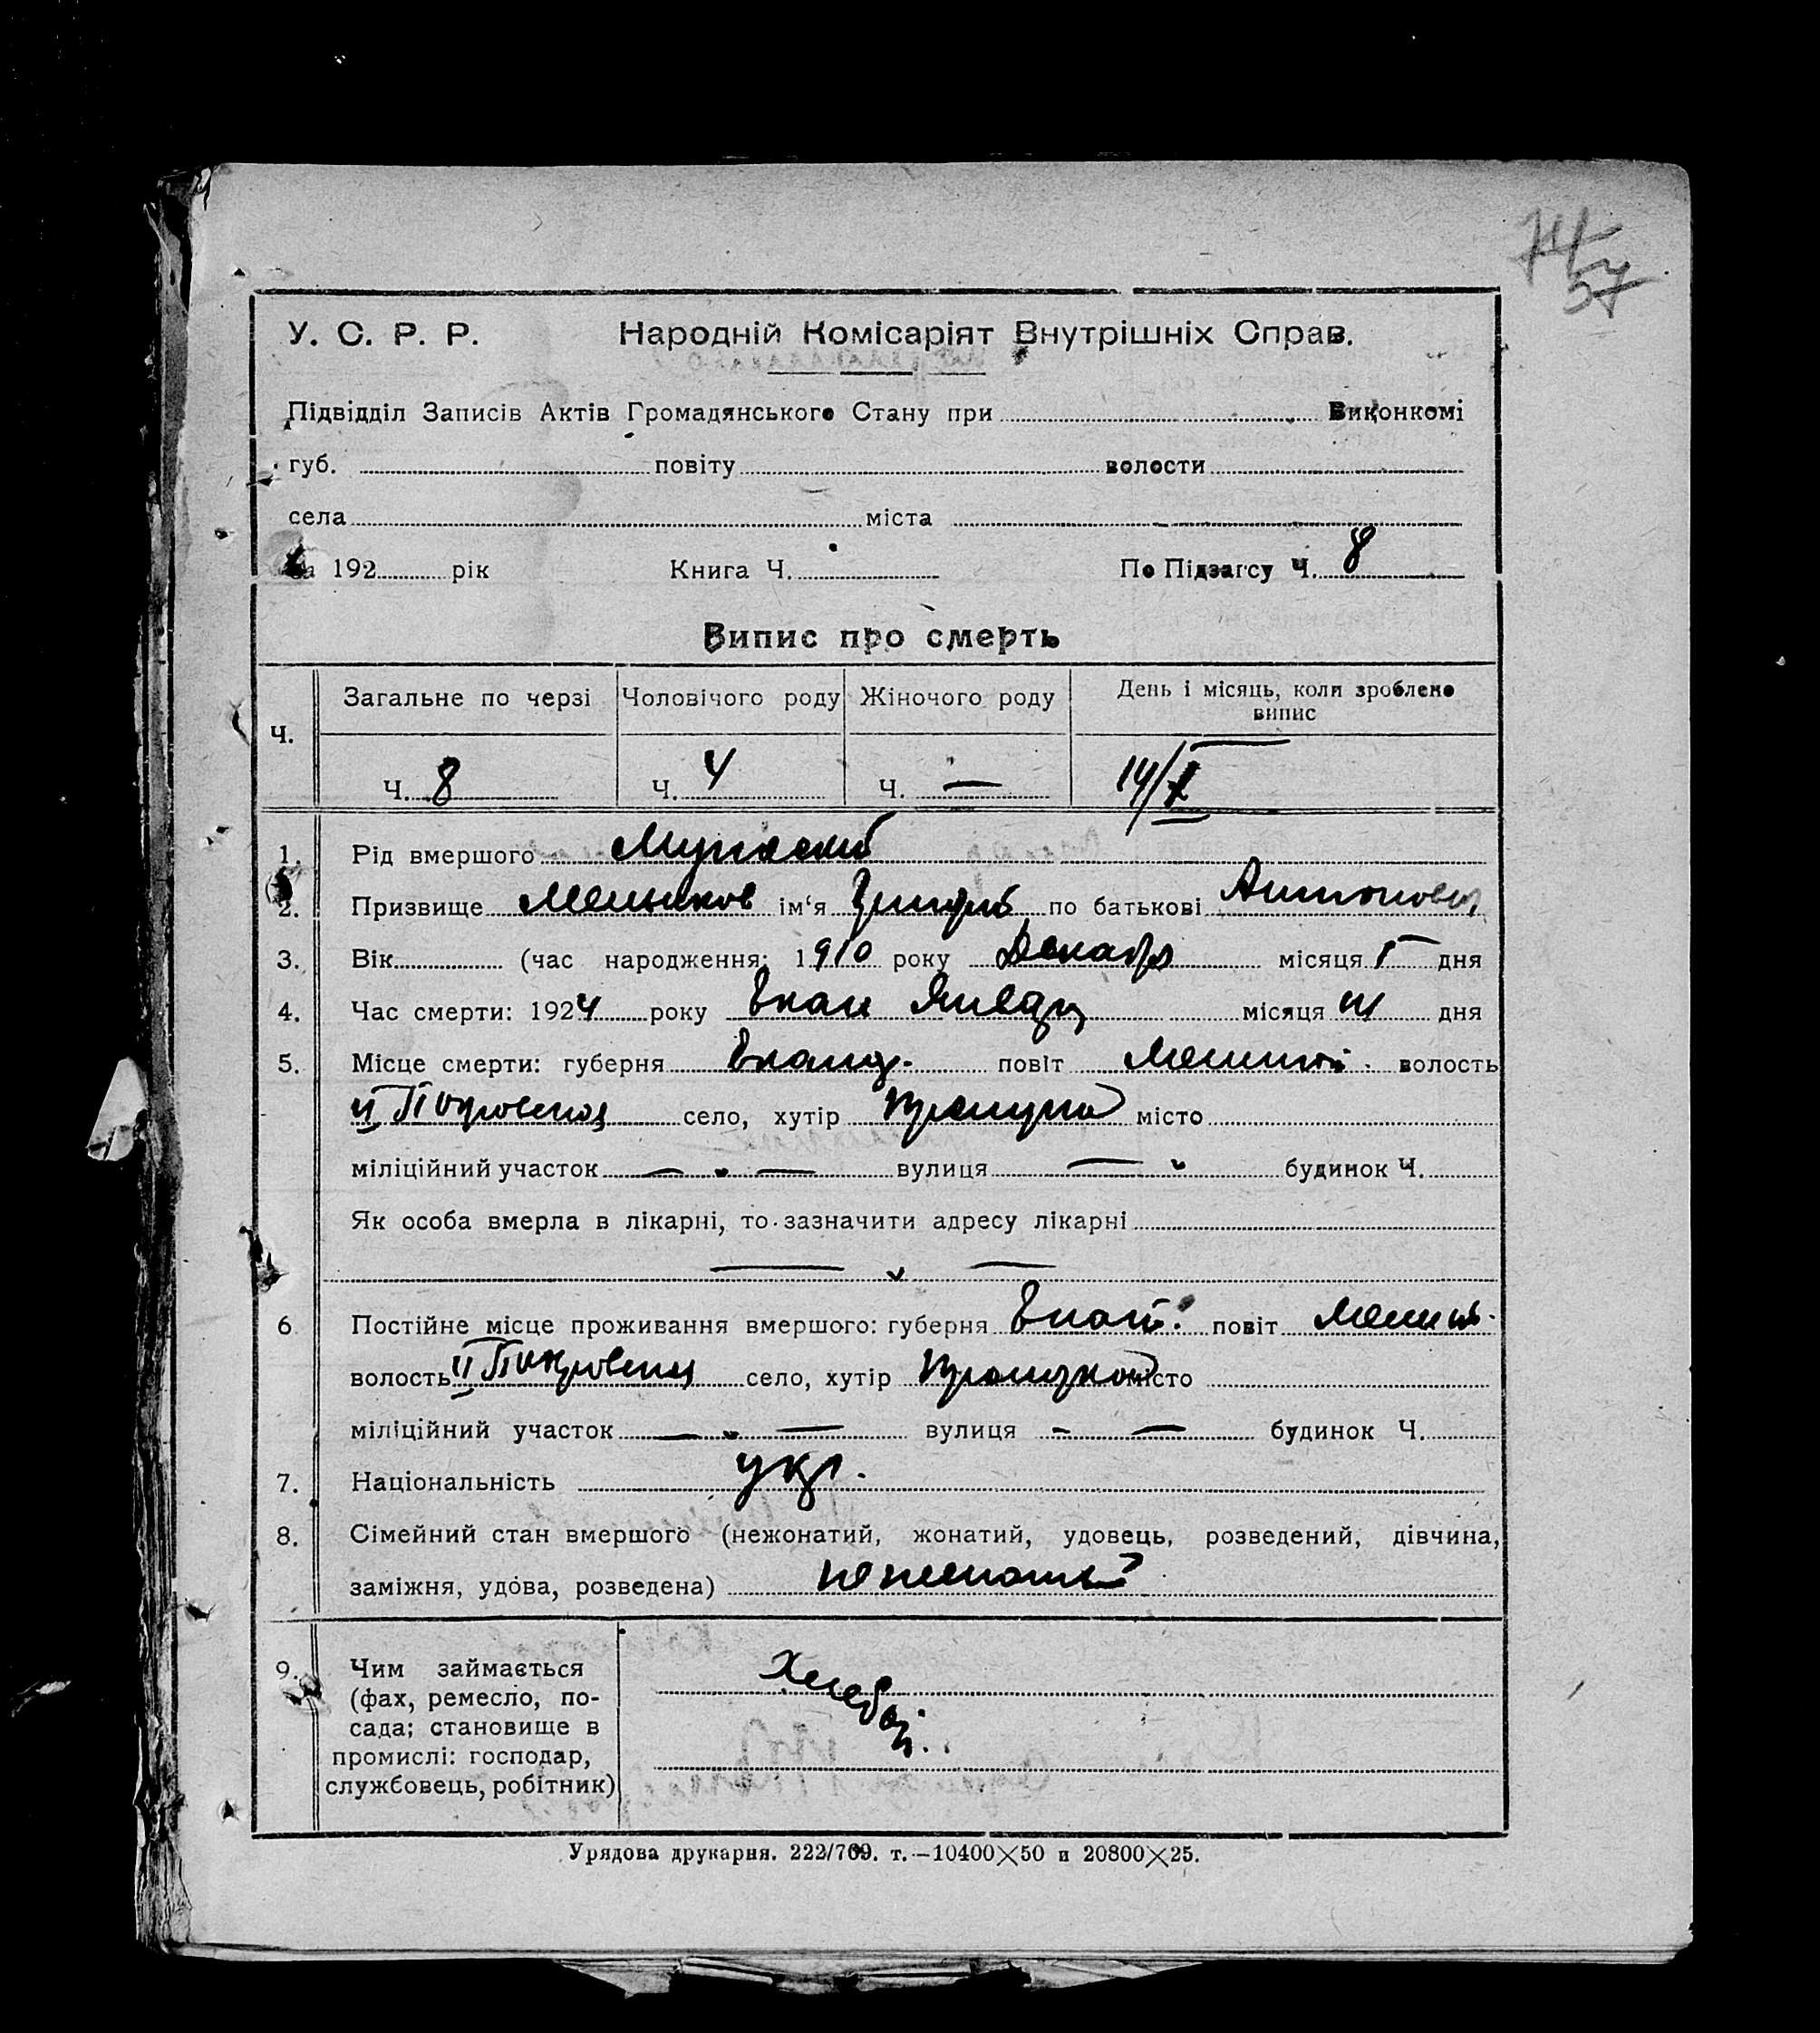 74
57
У. С. Р. Р. Народній Комісаріят Внутрішніх Справ.
Підвідділ Записів Актів Громадянського Стану при Виконкомі
губ. повіту волости
села міста
За 192 рік Книга Ч. По Підзагсу Ч. 8
Випис про смерть
Ч. Загальне по черзі Чоловічого роду Жіночого роду День і місяць, коли зроблено
випис
Ч. 8 Ч. 4 Ч. — 14/I
1. Рід вмершого Мужской
2. Призвище Мельников ім‘я Григорий по батькові Антонович
3. Вік (час народження: 1910 року Декабр місяця 1 дня
4. Час смерти: 1924 року Январ місяця дня
5. Місце смерти: губерня повіт волость
II Покровская село, хутір місто
міліційний участок — „ — вулиця — „ будинок Ч.
Як особа вмерла в лікарні, то зазначити адресу лікарні
— „ —
6 Постійне місце проживання вмершого: губерня Екат. повіт
волость II Покровская село, хутір місто
міліційний участок — „ — вулиця – — будинок Ч.
7. Національність укр.
8. Сімейний стан вмершого (нежонатий, жонатий, удовець, розведений, дівчина,
заміжня, удова, розведена) неженатый
9. Чим займається
(фах, ремесло, по-
сада; становище в
промислі: господар,
службовець, робітник)
Хлебоп.
Урядова друкарня. 222/709. т.—10400×50 и 20800×25.